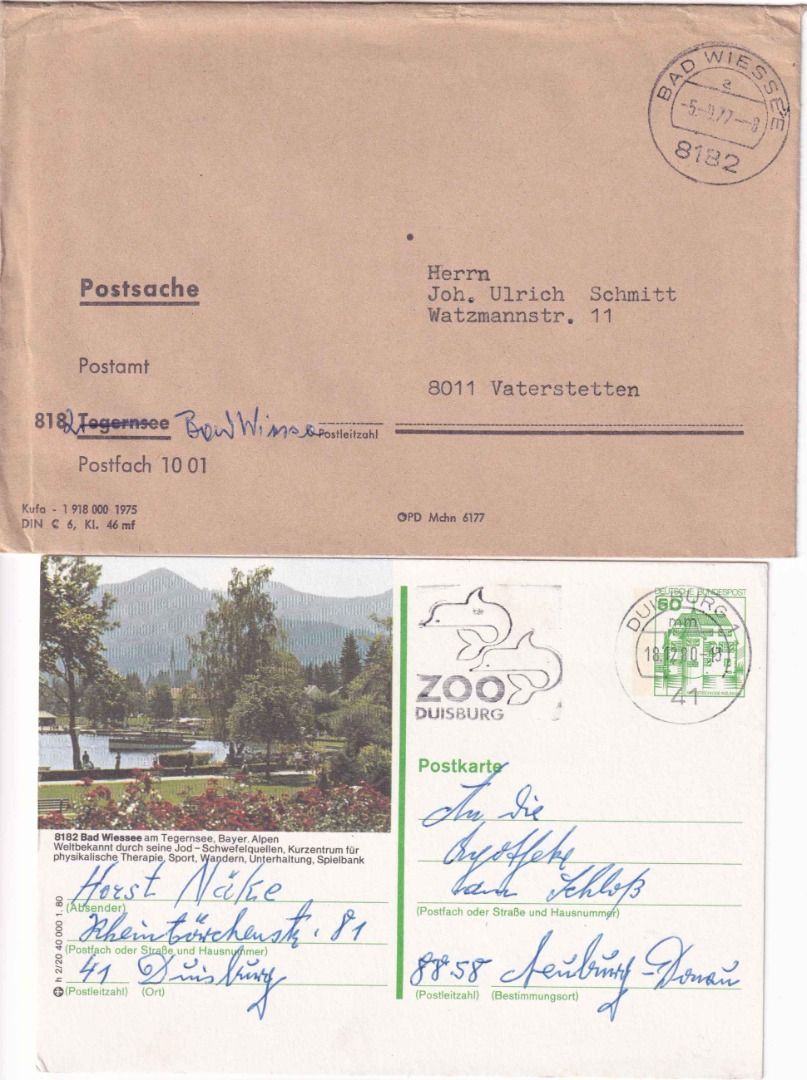 BAD WIESSEE
a
8182
Postsache
Herrn
Joh. Ulrich Schmitt
Watzmannstr. 11
Postamt
8011 Vaterstetten
8182 Tegernsee Bad Wiessee
Postleitzahl
Postfach 10 01
Kufa - 1 918 000 1975
DIN C 6, Kl. 46 mf
OPD Mchn 6177
ZOO
DUISBURG
DEUTSCHE BUNDESPOST
DUISBURG 1
mm
18.12.80-13
41
Postkarte
An die
Apotheke
am Schloß
(Postfach oder Straße und Hausnummer)
8858 Neuburg-Donau
(Postleitzahl) (Bestimmungsort)
8182 Bad Wiessee am Tegernsee, Bayer. Alpen
Weltbekannt durch seine Jod - Schwefelquellen, Kurzentrum für
physikalische Therapie, Sport, Wandern, Unterhaltung, Spielbank
Horst Näke
(Absender)
81
(Postfach oder Straße und Hausnummer)
41 Duisburg
(Postleitzahl) (Ort)
h 2/20 40 000 1.80